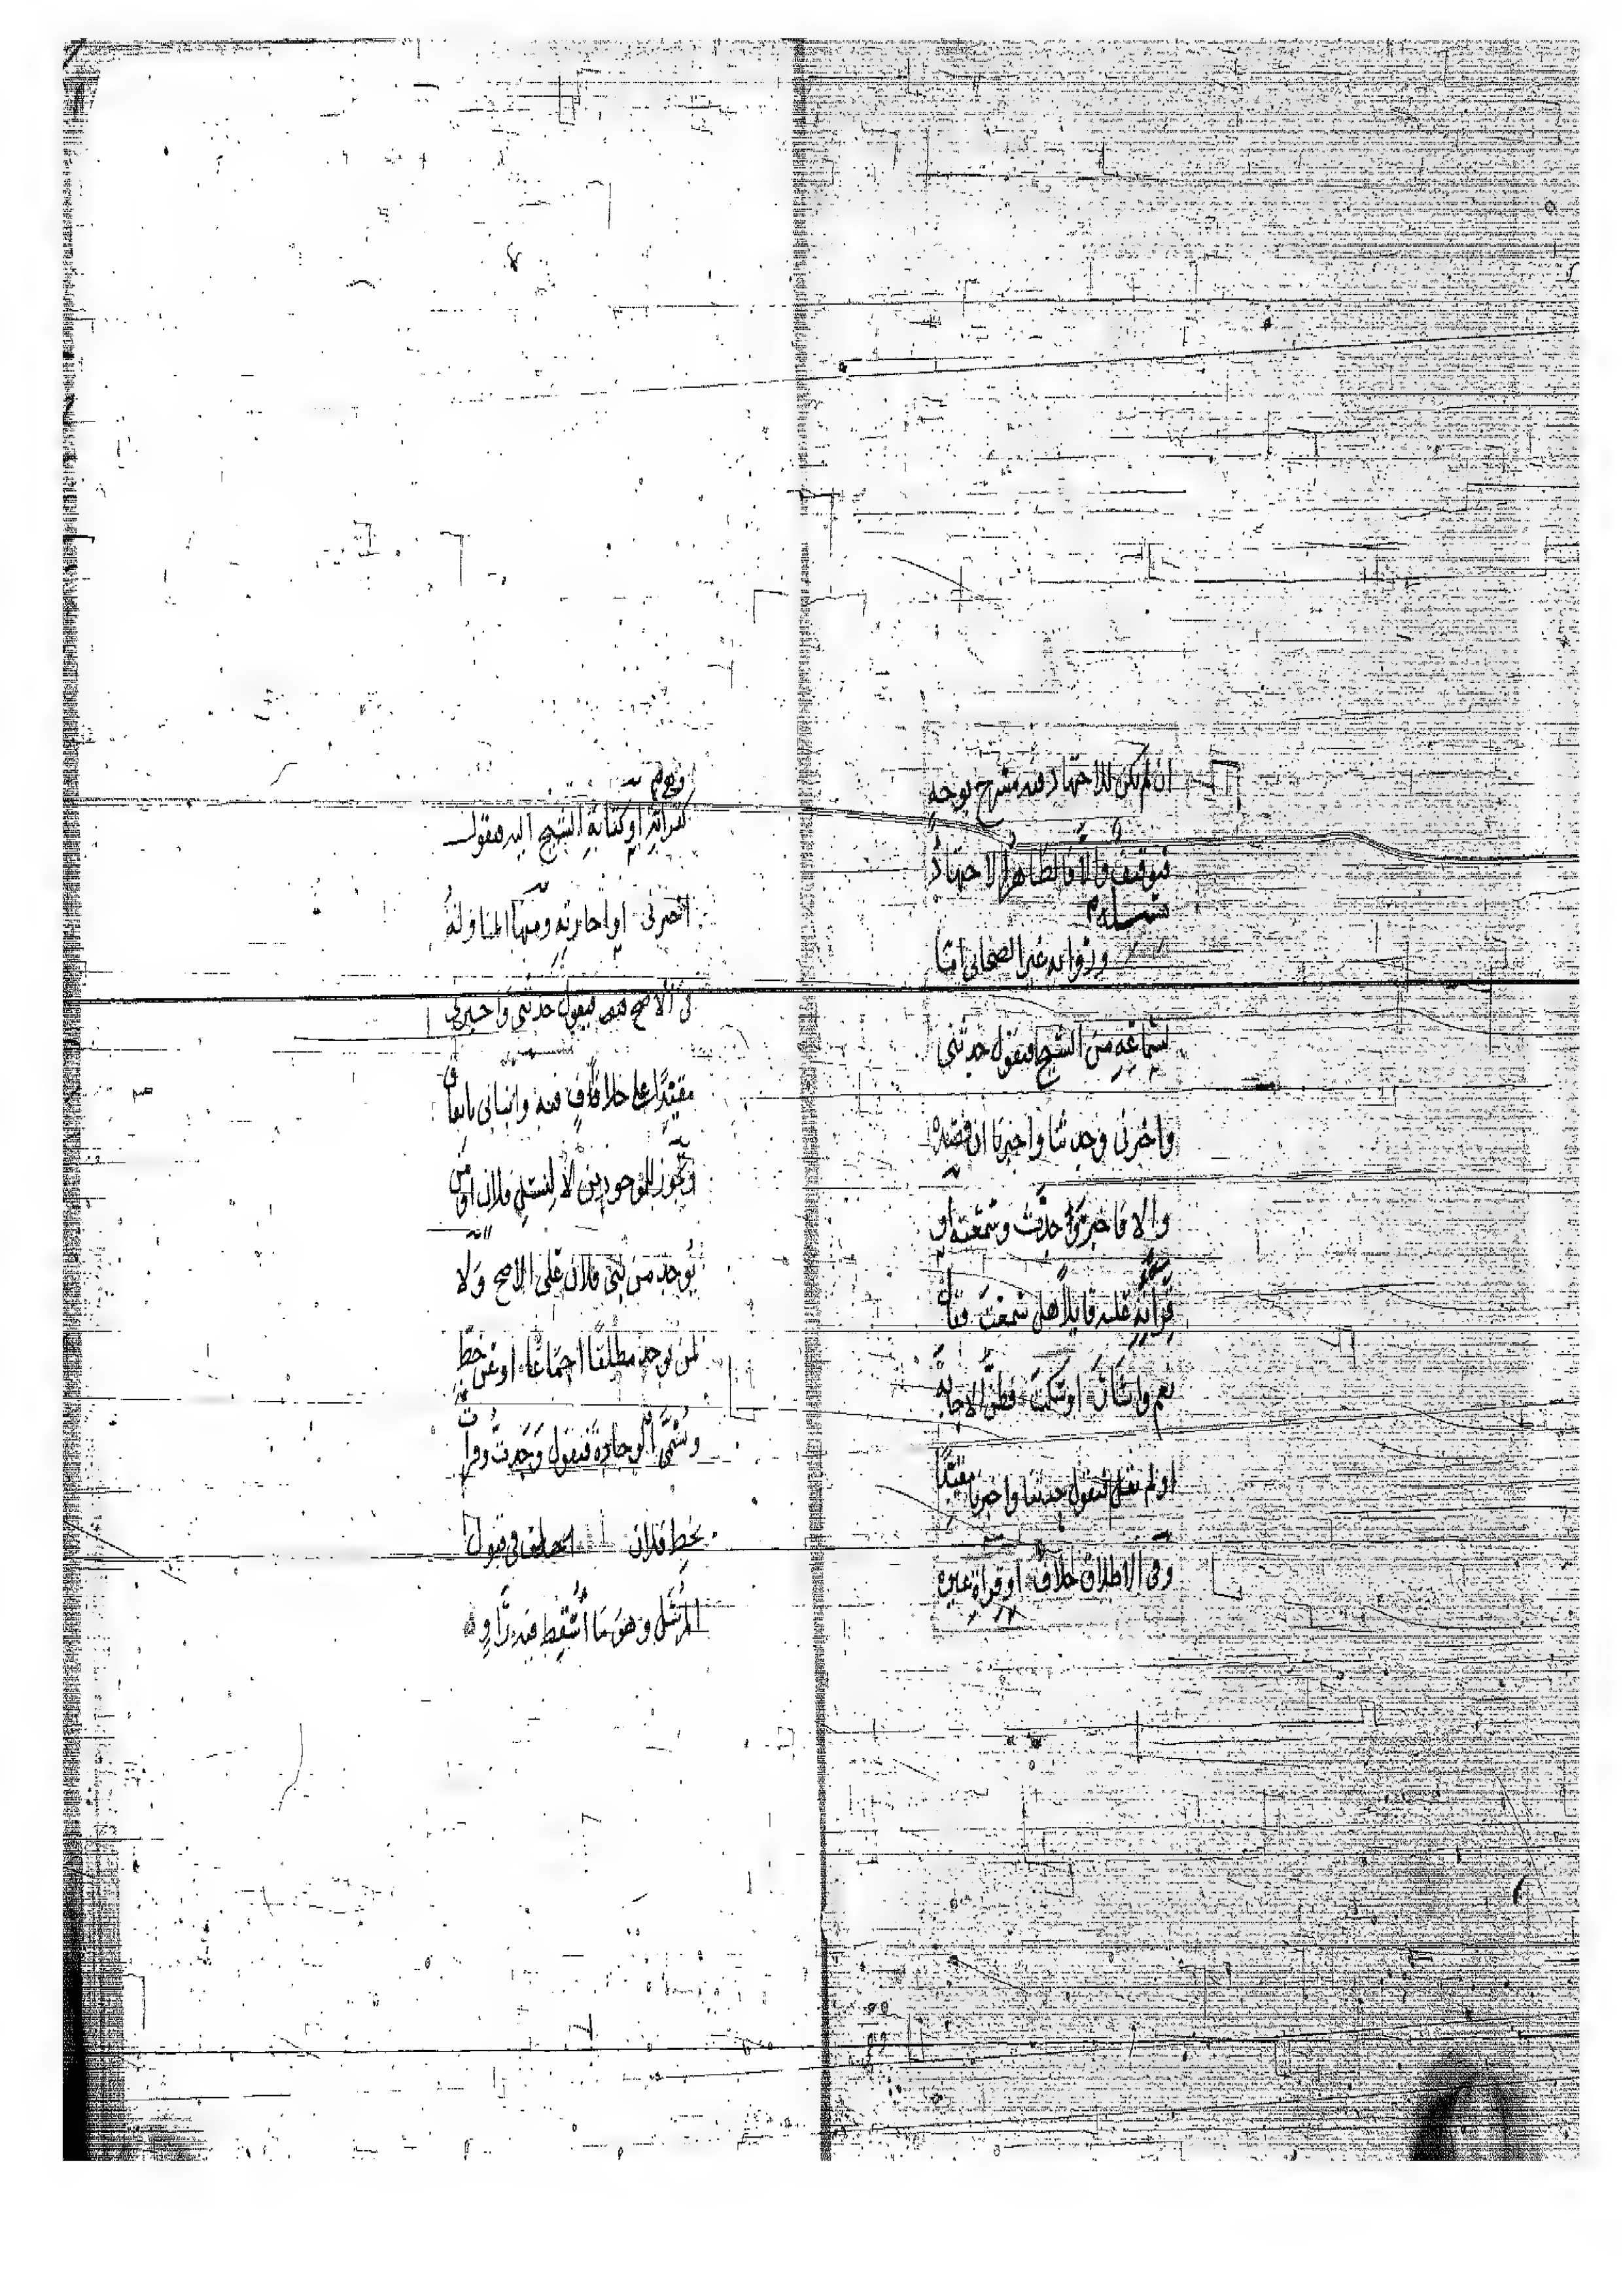 ان لم يكن للاجتهاد فيه مسرح بوجه
فتوقيف والا فالظاهر الاجتهاد
مسلة
ورواية غير الصحابي اما
لسماعه من الشيخ فيقول حدثني
واخبرني وحدثنا واخبرنا ان قصده
والا فاخبر وحدث وسمعته او
قرايته عليه قايلا هل سمعت فقال
نعم واشار او سكت فظن الاجابة
او لم تقل فيقول حدثنا واخبرنا مقيدا
وفي الاطلاق خلاف او قراة غيره
كقرايته او كتابة الشيخ اليه فيقول
اخبرني او اجازته ومنها المناولة
في الاصح فيقول حدثني واخبرني
مقيدا على خلاف فيه وانباني باتفاق
وتجوز للموجودين لا لنسل فلان او من
يوجد من بني فلان على الاصح ولا
لمن يوجد مطلقا اجماعا او عن خط
وتسمى الوجادة فيقول وجدت وقرات
بخط فلان اختلف في قبول
المرسل وهو ما اسقط فيه راو